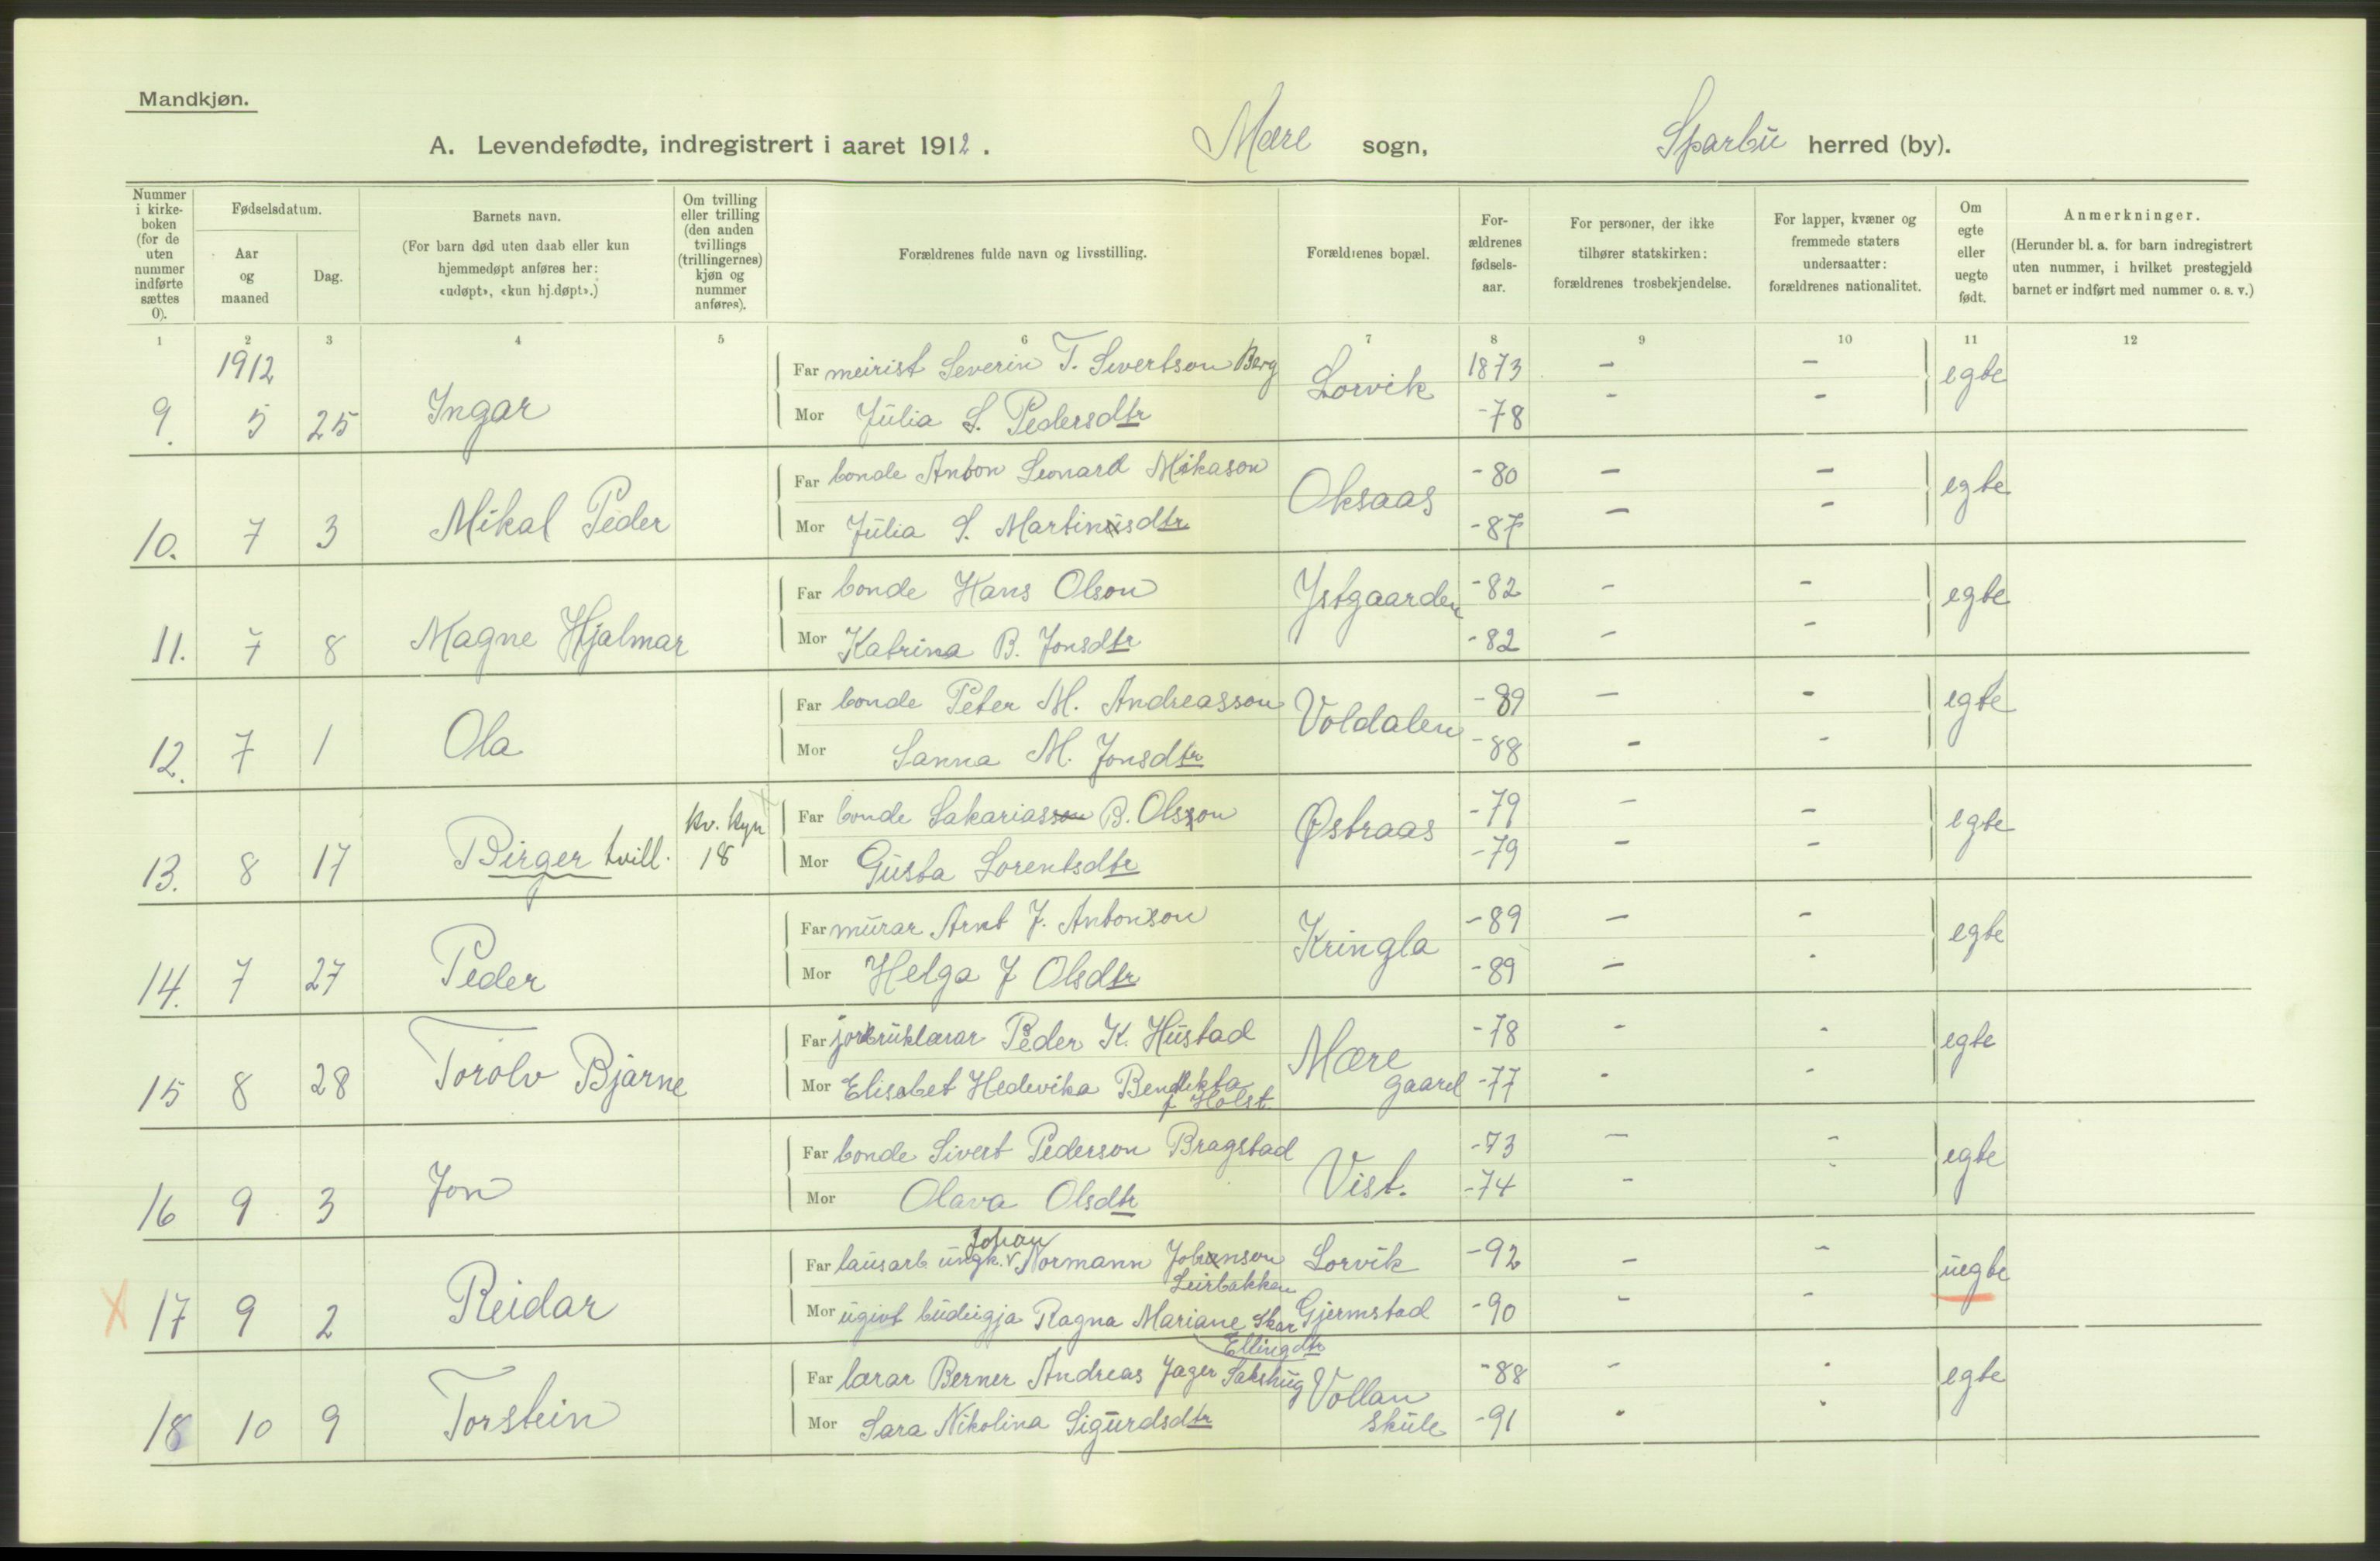 Mandkjøn.
A. Levendefødte, indregistrert i aaret 1912. Mære sogn, Sparbu herred (by).
Nummer i kirke-boken (for de uten nummer indførte sættes 0).
Fødselsdatum.
Aar og maaned
Dag.
Barnets navn.
(For barn død uten daab eller kun hjemmedøpt anføres her: «udøpt», «kun hj.døpt».)
Om tvilling eller trilling (den anden tvillings (trillingernes) kjøn og nummer anføres).
Forældrenes fulde navn og livsstilling.
Forældrenes bopæl.
For-ældrenes fødsels-aar.
For personer, der ikke tilhører statskirken: forældrenes trosbekjendelse.
For lapper, kvæner og fremmede staters undersaatter: forældrenes nationalitet.
Om egte eller uegte født.
Anmerkninger.
(Herunder bl. a. for barn indregistrert uten nummer, i hvilket prestegjeld barnet er indført med nummer o. s. v.)
1 2 3 4 5 6 7 8 9 10 11 12
1912
9. 5 25 Ingar
Far meirist Severin T. Sivertson Berg Lorvik 1873 - - egte
Mor Julia S. Pedersdtr -78 - -
10. 7 3 Mikal Peder
Far bonde Anton Leonard Mikason Oksaas -80 - - egte
Mor Julia S. Martinusdtr -87 - -
11. 7 8 Magne Hjalmar
Far bonde Hans Olson Ystgaarden -82 - - egte
Mor Katrina B. Jonsdtr -82 - -
12. 7 1 Ola
Far bonde Peter M. Andreasson Voldalen -89 - - egte
Mor Sanna M. Jonsdtr -88 - -
13. 8 17 Birger tvill. kv. kyn 18
Far bonde Sakariasson B. Olsson Østraas -79 - - egte
Mor Gusta Lorentsdtr -79 - -
14. 7 27 Peder
Far murar Arnt J. Antonson Kringla -89 - - egte
Mor Helga J Olsdtr -89 - -
15 8 28 Torolv Bjarne
Far jorbruklærar Peder K. Hustad Mære gaard -78 - - egte
Mor Elisabet Hedevika Bendikta f Holst. -77 - -
16 9 3 Jon
Far bonde Sivert Pederson Bragstad Vist. -73 - - egte
Mor Olava Olsdtr -74 - -
X 17 9 2 Reidar
Far lausarb ungk. v Johan Normann Johanson Leirbakken Lorvik -92 - - uegte
Mor ugivt budeigja Ragna Mariane Skar Ellingdtr Gjermstad -90 - -
18 10 9 Torstein
Far lærar Berner Andreas Jager Sakshug Vollan skule -88 - - egte
Mor Sara Nikolina Sigurdsdtr -91 - -